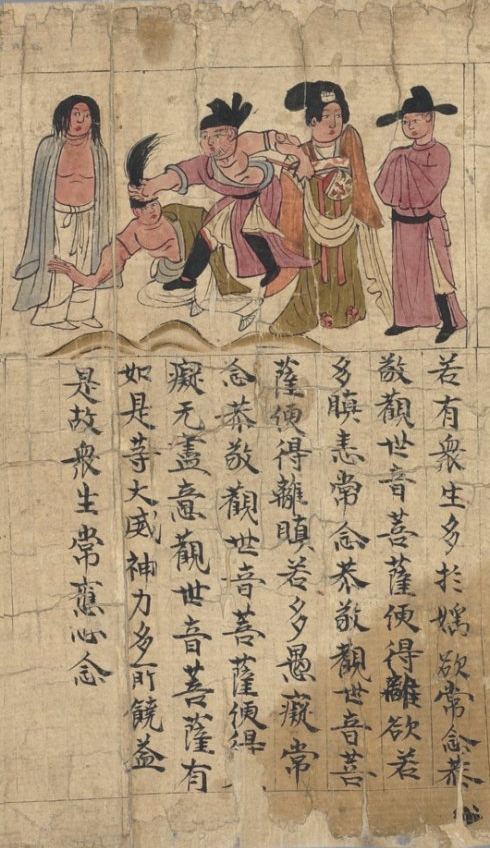 若有衆生多於婬欲常念恭
敬觀世音菩薩便得離欲若
多瞋恚常念恭敬觀世音菩
薩便得離瞋若多愚癡常
念恭敬觀世音菩薩便得
癡无盡意觀世音菩薩有
如是等大威神力多所饒益
是故衆生常應心念